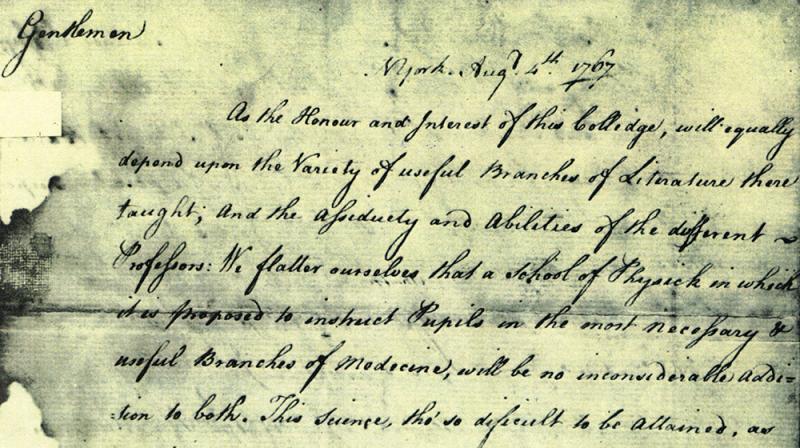 Gentlemen
NYork. Augt. 4th. 1767
As the Honour and Interest of this Colledge, will equally
depend upon the Variety of useful Branches of Literature there
taught; And the Assiduety and Abilities of the different ~
Professors: We flatter ourselves that a School of Physick in which
it is proposed to instruct Pupils in the most necessary &
useful Branches of Medecine, will be no inconsiderable addi=
=tion to both. This science, tho' so difficult to be attained, as